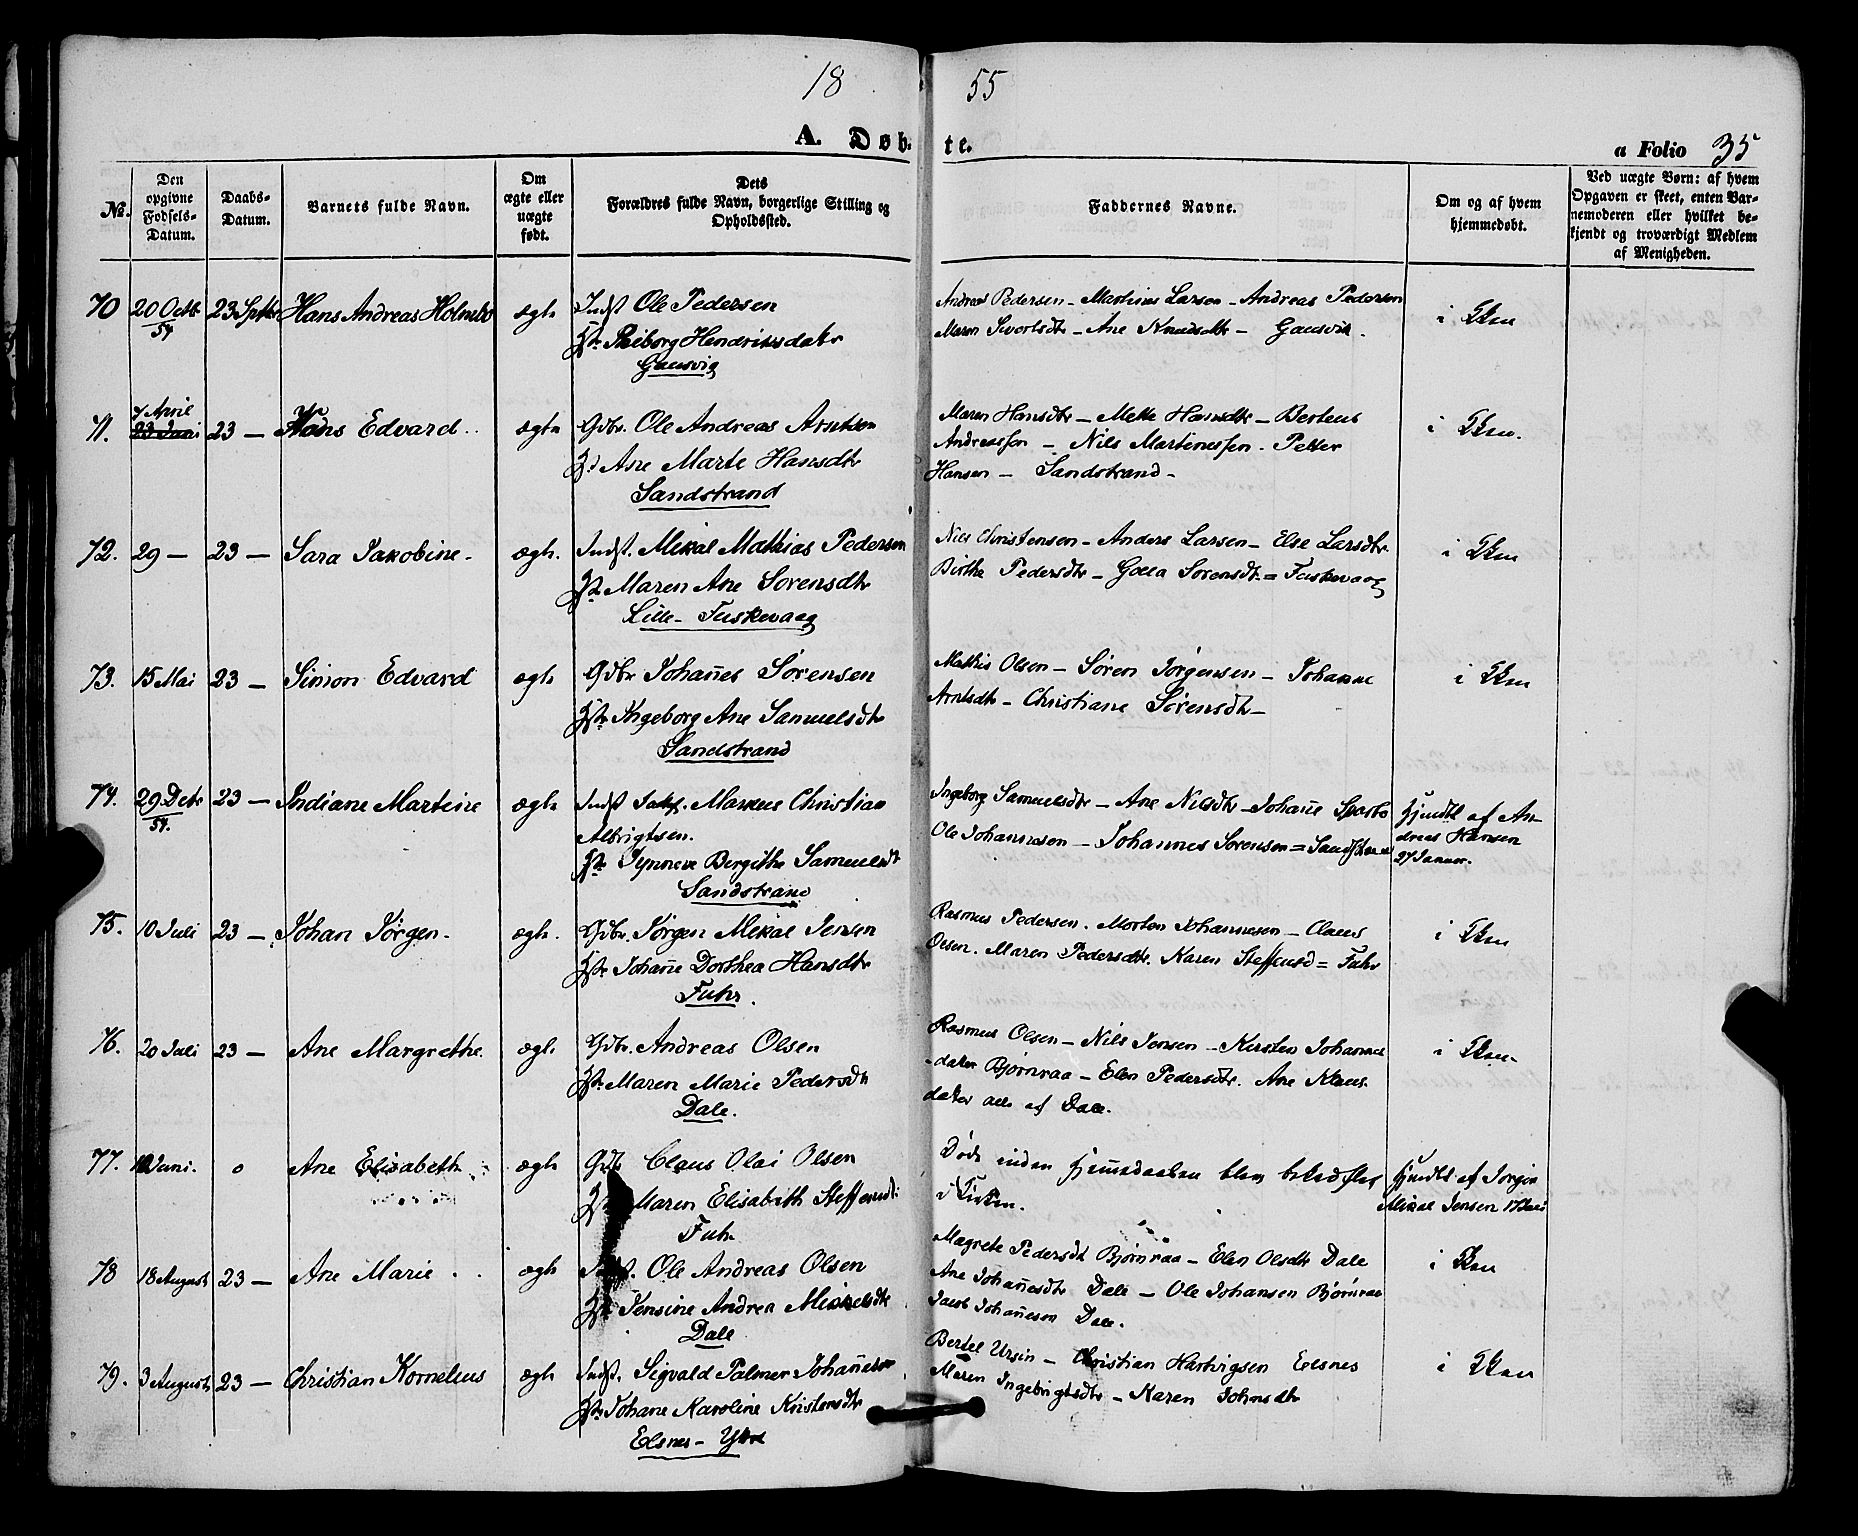 18 55
A. Døbte. a Folio 35
No.
Den opgivne Fødsels-Datum.
Daabs-Datum.
Barnets fulde Navn.
Om ægte eller uægte født.
Dets Forældres fulde Navn, borgerlige Stilling og Opholdssted.
Faddernes Navne.
Om og af hvem hjemmedøbt.
Ved uægte Børn: af hvem Opgaven er skeet, enten Barnemoderen eller hvilket bekjendt og troværdigt Medlem af Menigheden.
70 20 Octb 54 23 Sptbr Hans Andreas ægte Indst Ole Pedersen
Hendriksdatr
Gausvig
Andreas Pedersen - Martinus Larsen - Andreas Pedersen
Maren - Ane Knudsdtr - Gausvik.
i Kken
71. 7 April 23 Juni 23 — Hans Edvard ægte Gdbr. Ole Andreas Arntsen
Ane Marte Hansdtr
Sandstrand
Maren Hansdtr - Mette Hansdtr - Berteus
Andreassen - Nils Martinessen - Petter
Hansen - Sandstrand -
i Kken.
72. 29 — 23 — Sara Jakobine - ægte. Indst. Mikal Mathias Pedersen
Maren Ane Sørensdtr
Lille - Fuskevaag
Nils Christensen - Anders Larsen - Else Larsdtr
Birthe Pedersdtr - Sørensdtr = Fuskevaag
i Kken
73. 15 Mai 23 — Simon Edvard ægte Gdbr Johañes Sørensen
Ingeborg Ane Samuelsdtr
Sandstrand
Mathis Olsen - Søren Jørgensen - Johanne
Arntsdtr - Christiane Sørensdtr -
i Kken
74. 29 Decbr 54. 23 — Indiane Martine ægte Indst Markus Christian
Albrigtsen.
Synneve Bergithe Samuelsdt
Sandstrand
Ingeborg Samuelsdtr - Ane Nilsdtr - Johañe
Ole Johannesen - Johannes Sørensen = Sandstrand
hjmdbt af Andreas Hansen
27 Januar.
75. 10 Juli 23 — Johan Jørgen - ægte. Gdbr. Jørgen Mikal Jensen
Johañe Dorthea Hansdtr
Fuhr.
Rasmus Pedersen. Morten Johannesen - Claus
Olsen. Maren Pedersdtr. Karen Steffensd = Fuhr
i Kken
76. 20 Juli 23 — Ane Margrethe. ægte Gdbr. Andreas Olsen
Maren Marie Pedersdtr
Dale.
Rasmus Olsen - Nils Jensen - Kirsten Johannes
-dater Bjørnraa - Elen Pedersdtr. Ane Klaus
dater alle af Dale.
i Kken
77. Juni. o Ane Elisabeth ægte Claus Olai Olsen
Maren Elisabeth Steffensdtr
Fuhr
Døde inden hjemmedaaben blev bekræftet
i Kirken.
hjmdbt af Jørgin
Mikal Jensen
78 18 August 23 — Ane Marie ægte Ole Andreas Olsen
Jensine Andrea Mikkelsdtr
Dale
Magrete Pedersdt Bjørnraa - Elen Olsdtr Dale
Ane Johañesdtr Dale - Ole Johansen Bjørnraa
Jacob Johañesen Dale.
i Kken
79. 3 August 23 — Christian Kornelius ægte Indst. Sigvald Palmer Johañesen
Johane Karoline Kristensdtr
Elsnes - Ytre
Bertel Ursin - Christian Hartvigsen Elsnes
Maren Ingebrigtsdtr - Karen Johnsdtr
i Kken